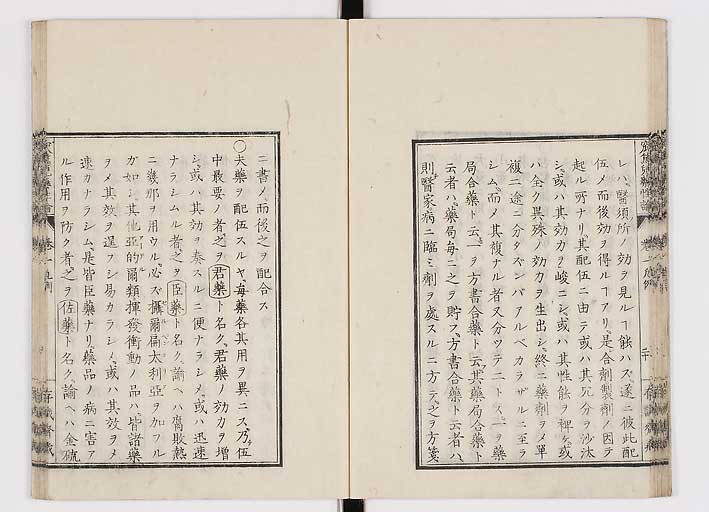 レハ、醫須所ノ効ヲ見ルヿ能ハズ、遂ニ彼此配
伍メ而後効ヲ得ルヿアリ、是合劑製劑ノ因テ
起ル所ナリ、其配伍ニ由テ或ハ其冗分ヲ沙汰
シ、或ハ其効力ヲ峻ニシ、或ハ其性能ヲ裨ケ、或
ハ全ク異殊ノ効力ヲ生出シ、終ニ藥劑ヲメ單
複二途ニ分タズンバアルベカラザルニ至ラ
シム、而メ其複ナル者又分ツテ二トス、一ヲ藥
局合藥ト云、一ヲ方書合藥ト云、其藥局合藥ト
云者ハ、藥局毎ニ之ヲ貯フ、方書合藥ト云者ハ
則醫家病ニ臨ミ劑ヲ處スルニ方テ、之ヲ方箋
ニ書メ、而後之ヲ配合ス
○夫藥ヲ配伍スルヤ、毎藥各其用ヲ異ニス、乃伍
中最要ノ者之ヲ君藥ト名ク、君藥ノ効力ヲ増
シ、或ハ其効ヲ奏スルニ便ナラシメ、或ハ迅速
ナラシムル者之ヲ臣藥ト名ク、諭ヘハ腐敗熱
ニ幾那ヲ用ウル、必ズ攝爾扁太利亞ヲ加フル
ガ如シ、其他亞的爾類揮發衝動ノ品ハ、皆諸藥
ヲメ其効ヲ逞フシ易カラシメ、或ハ其效ヲメ
速カナラシム、是皆臣藥ナリ、藥品ノ病ニ害ア
ル作用ヲ防ク者之ヲ佐藥ト名ク、諭ヘハ金硫